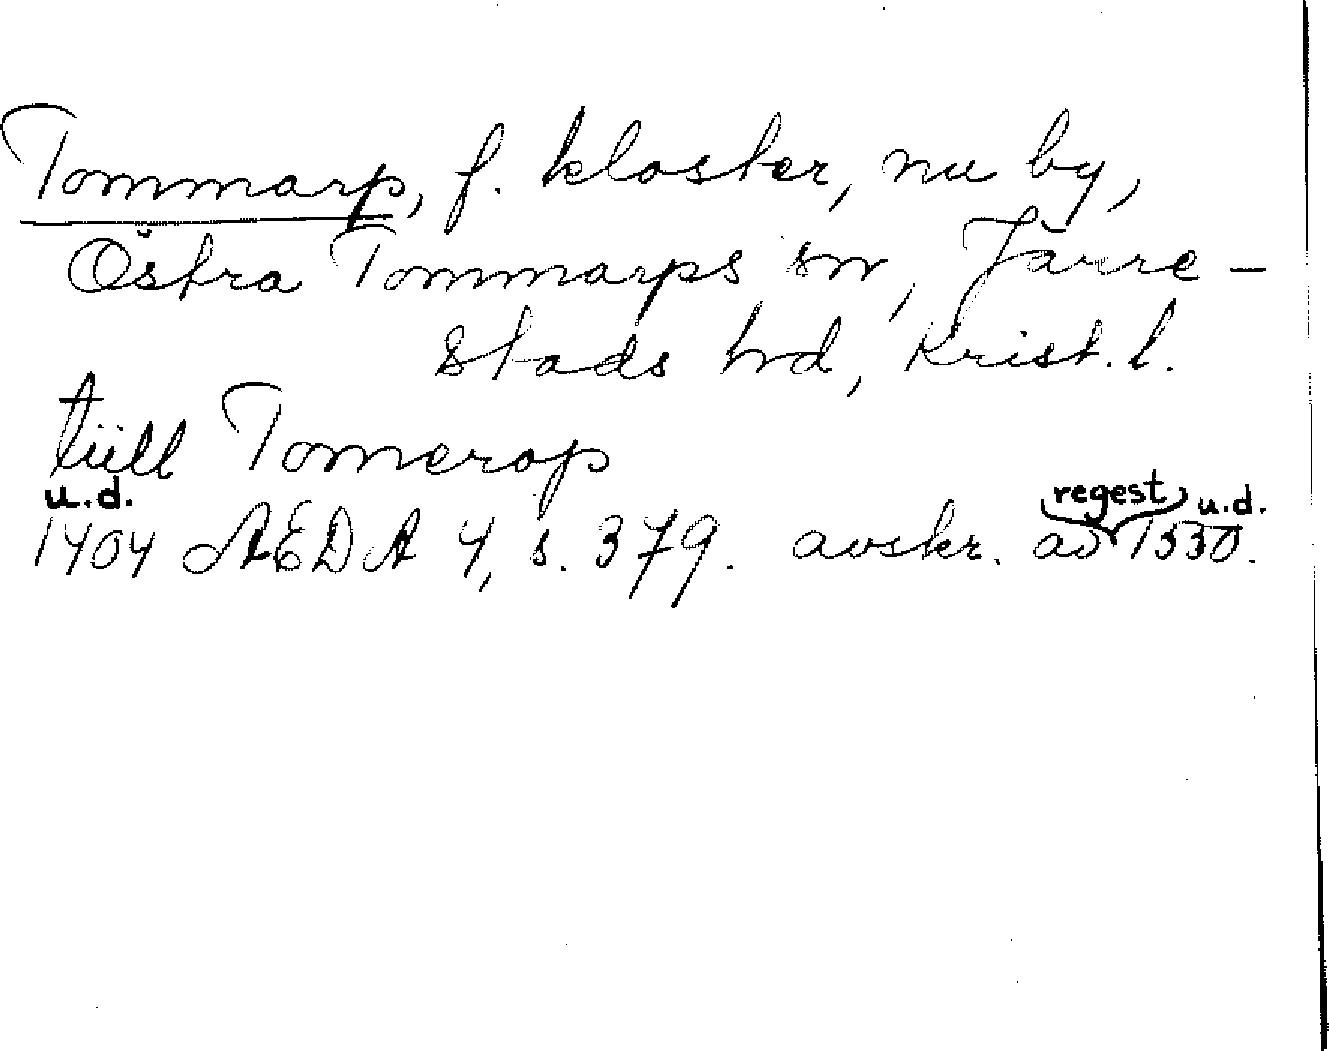 Tommarp, f. kloster, nu by,
Östra Tommarps sn, Järre-
stads hd, Krist. l.
tüll Tomerop
u.d. regest u.d.
1404 AEDA 4, s. 379. avskr. av 1530.